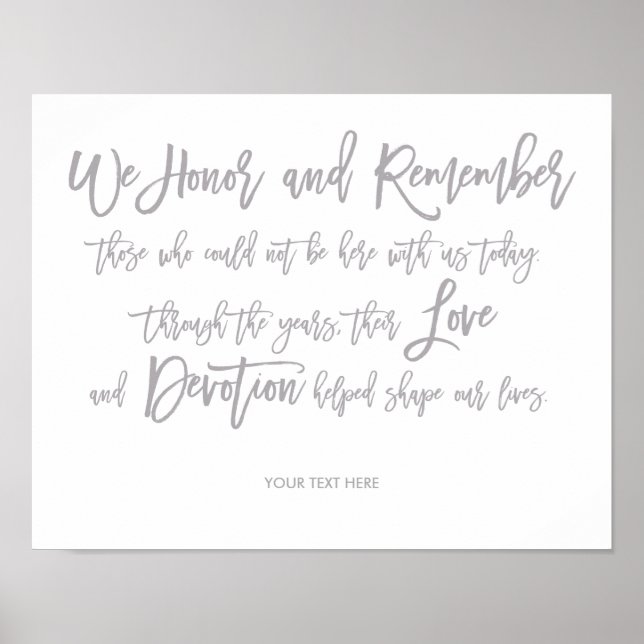 We Honor and Remember
those who could not be here with us today.
through the years, their Love
and Devotion helped shape our lives.
YOUR TEXT HERE